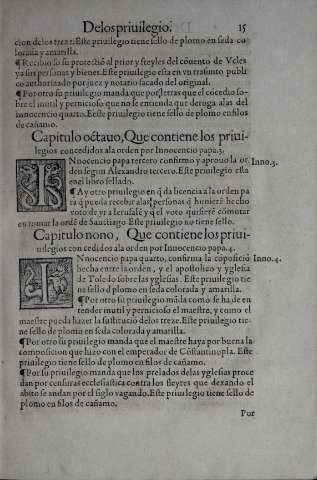 Delos priuilegio. 15
cion delos treze. Este priuilegio tiene sello de plomo en seda co
lorada y amarilla.
¶ Recibio so su protectiõ al prior y freyles del cõuento de Vcles
ya sus personas y bienes. Este priuilegio esta en vn trasunto publi
co authorizado por juez y notario sacado del original.
¶ Por otro su priuilegio manda que por letras que el cõcedio so-
bre el inutil y pernicioso que no se entienda que deroga alas del
Innocencio quarto. Este priuilegio tiene sello de plomo en filos
de cañamo.
Capitulo octauo, Que contiene los priui-
legios concedidos ala orden por Innocencio papa. 3.
INnocencio papa tercero confirmo y aprouo la or Inno. 3.
den segun Alexandro tercero. Este priuilegio esta
en el libro sellado.
¶ Ay otro priuilegio en q̃ da licencia a la orden pa
ra q̃ pueda recebir alas personas q̃ huuierẽ hecho
voto de yr a Ierusalẽ y q̃ el voto quisierẽ cõmutar
en tomar la ordẽ de Sanctiago Este priuilegio no tiene sello.
Capitulo nono, Que contiene los priui-
uilegios concedidos ala orden por Innocencio papa. 4.
INnocencio papa quarto, confirma la cõposiciõ Inno. 4.
hecha entre la orden, y el apostolico y yglesia
de Toledo sobre las yglesias. Este priuilegio tie
ne sello d plomo en seda colorada y amarilla.
¶ Por otro su priuilegio mãda como se ha, de en
tender inutil y pernicioso el maestre, y como el
maestre pueda hazer la sustituciõ delos treze. Este priuilegio tie-
ne sello de plomo en seda colorada y amarilla.
¶ Por otro su priuilegio manda que el maestre haya por buena la
composicion que hizo con el emperador de Cõstantinopla. Este
priuilegio tiene sello de plomo en filos de cañamo.
¶ Por su priuilegio manda que los prelados delas yglesias proce
dan por censuras ecclesiastica contra los freyres que dexando el
abito se andan por el siglo vagando. Este priuilegio tiene sello de
plomo en filos de cañamo.
Por